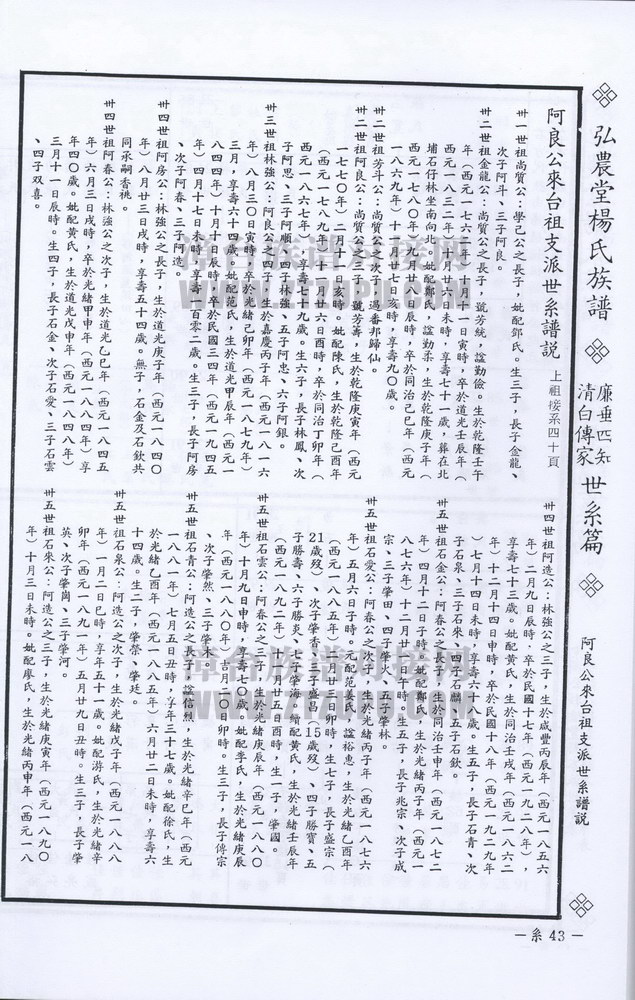 弘農堂楊氏族譜
廉垂四知
清白傳家
世系篇
阿良公來台祖支派世系譜説
阿良公來台祖支派世系譜説 上祖接系四十頁
卅一世祖尚賢公：學己公之長子，妣配邱氏。生三子，長子金龍、
次子阿斗、三子阿良。
卅二世祖金龍公：尚賢公之長子，號芳統，諡勤儉。生於乾隆壬午
年（西元一七六二年）十月十一日寅時，卒於道光壬辰年（
西元一八三二年）十月廿六日未時，享壽七十一歲，葬在北
埔石仔林坐南向北。妣配鄭氏，諡勤柔，生於乾隆庚子年（
西元一七八〇年）九月廿八日辰時，卒於同治己巳年（西元
一八六九年）十一月廿七日亥時，享壽九〇歲。
卅二世祖芳斗公：尚賢公之次子，過番邦歸仙。
卅二世祖阿良公：尚賢公之三子，號芳蕃，生於乾隆庚寅年（西元
一七七〇年）二月十一日亥時。妣配陳氏，生於乾隆己酉年
（西元一七八九年）十一月廿六日酉時，卒於同治丁卯年（
西元一八六七年），享壽七十九歲。生六子，長子林鳳、次
子阿思、三子阿順、四子林強、五子阿忠、六子阿銀。
卅三世祖林強公：阿良公之四子，生於嘉慶丙子年（西元一八一六
年）八月三〇日寅時，卒於光緒己卯年（西元一八七九年）
三月，享壽六十四歲。妣配范氏，生於道光甲辰年（西元一
八四四年）十月十日辰時，卒於民國三四年（西元一九四五
年）四月十七日未時，享壽一百零二歲。生三子，長子阿房
、次子阿春、三子阿造。
卅四世祖阿房公：林強公之長子，生於道光庚子年（西元一八四〇
年）八月廿三日戌時，享壽五十四歲。無子，石金及石欽共
同承嗣香桃。
卅四世祖阿春公：林強公之次子，生於道光乙巳年（西元一八四五
年）六月三日戌時，卒於光緒甲申年（西元一八八四年）享
年四〇歲。妣配黃氏，生於道光戊申年（西元一八四八年）
三月十一日辰時。生四子，長子石金、次子石愛、三子石雲
、四子双喜。
卅四世祖阿造公：林強公之三子，生於咸豐丙辰年（西元一八五六
年）二月九日辰時，卒於民國十七年（西元一九二八年），
享壽七十三歲。妣配黃氏，生於同治壬戌年（西元一八六二
年）十二月十四日申時，卒於民國十八年（西元一九二九年
）七月十四日未時，享壽六十八歲。生五子，長子石青、次
子石泉、三子石來、四子石麟、五子石欽。
卅五世祖石金公：阿春公之長子，生於同治壬申年（西元一八七二
年）四月十二日子時。妣配鄭氏，生於光緒丙子年（西元一
八七六年）十二月廿一日午時。生五子，長子兆宗、次子成
宗、三子肇田、四子肇火、五子肇林。
卅五世祖石愛公：阿春公之次子，生於光緒丙子年（西元一八七六
年）五月六日子時。元配范姜氏，諡裕惠，生於光緒乙酉年
（西元一八八五年）二月廿三日卯時，生七子，長子盛宗（
21歲歿）、次子肇香、三子盛昌（15歲歿）、四子勝寶、五
子勝壽、六子勝炎、七子肇海。續配黃氏，生於光緒壬辰年
（西元一八九二年）十一月廿五日酉時，生一子，肇國。
卅五世祖石雲公：阿春公之三子，生於光緒庚辰年（西元一八八〇
年）十月九日申時，享壽七〇歲。妣配李氏，生於光緒庚辰
年（西元一八八〇年）吉月二〇日卯時。生三子，長子傳宗
、次子肇然、三子肇木。
卅五世祖石青公：阿造公之長子，諡信烈，生於光緒辛巳年（西元
一八八一年）七月五日丑時，享年三十七歲。妣配徐氏，生
於光緒乙酉年（西元一八八五年）六月廿二日未時，享壽六
十四歲。生二子，肇榮、肇廷。
卅五世祖石泉公：阿造公之次子，生於光緒戊子年（西元一八八八
年）一月二日巳時，享年五十一歲。妣配游氏，生於光緒辛
卯年（西元一八九一年）五月廿九日丑時。生三子，長子肇
英、次子肇崗、三子肇河。
卅五世祖石來公：阿造公之三子，生於光緒庚寅年（西元一八九〇
年）十月三日未時。妣配廖氏，生於光緒丙申年（西元一八
－系 43－